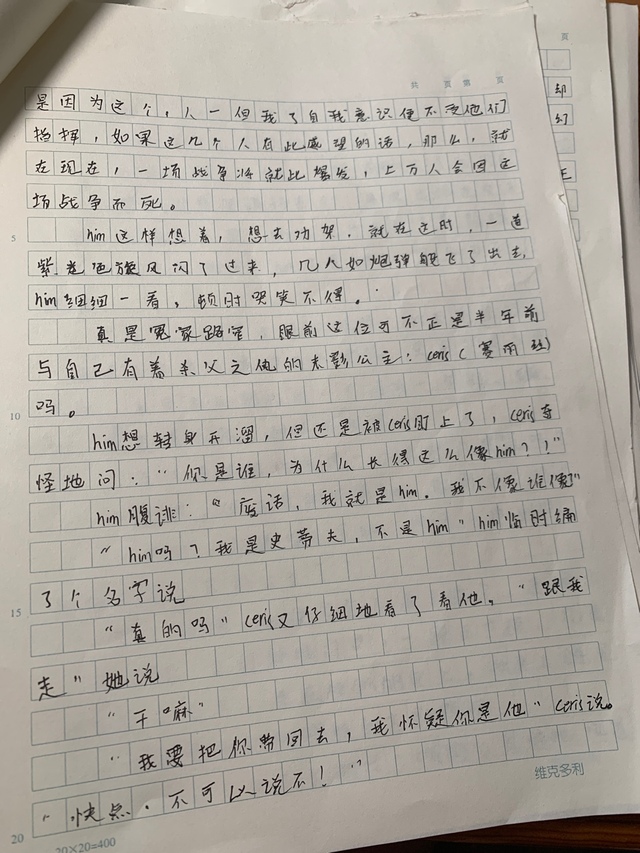 共 页 第 页
页
却
幻
是因为这个,人一但我了自我意识便不受他们
指挥,如果这几个人在此感望的话,那么,就
在现在,一场战争将就此爆发,上万人会因这
场战争而死。
5 him这样想着,想去劝架,就在这时,一道
紫色旋风闪了过来,几人如炮弹般飞了出去,
him细细一看,顿时哭笑不得。
真是冤家路窄,眼前这位可不正是半年前
与自己有着杀父之仇的末影公主:ceris(赛丽丝)
10 吗。
him想转身开溜,但还是被ceris盯上了,ceris奇
怪地问:“你是谁,为什么长得这么像him??”
him腹诽:“废话,我就是him。我不像谁像”
“him吗?我是史蒂夫,不是him”him临时编
15 了个名字说
“真的吗”ceris又仔细地看了看他,“跟我
走”她说
“干嘛”
“我要把你带回去,我怀疑你是他”ceris说。
“快点,不可以说不!”
20 20×20=400
维克多利